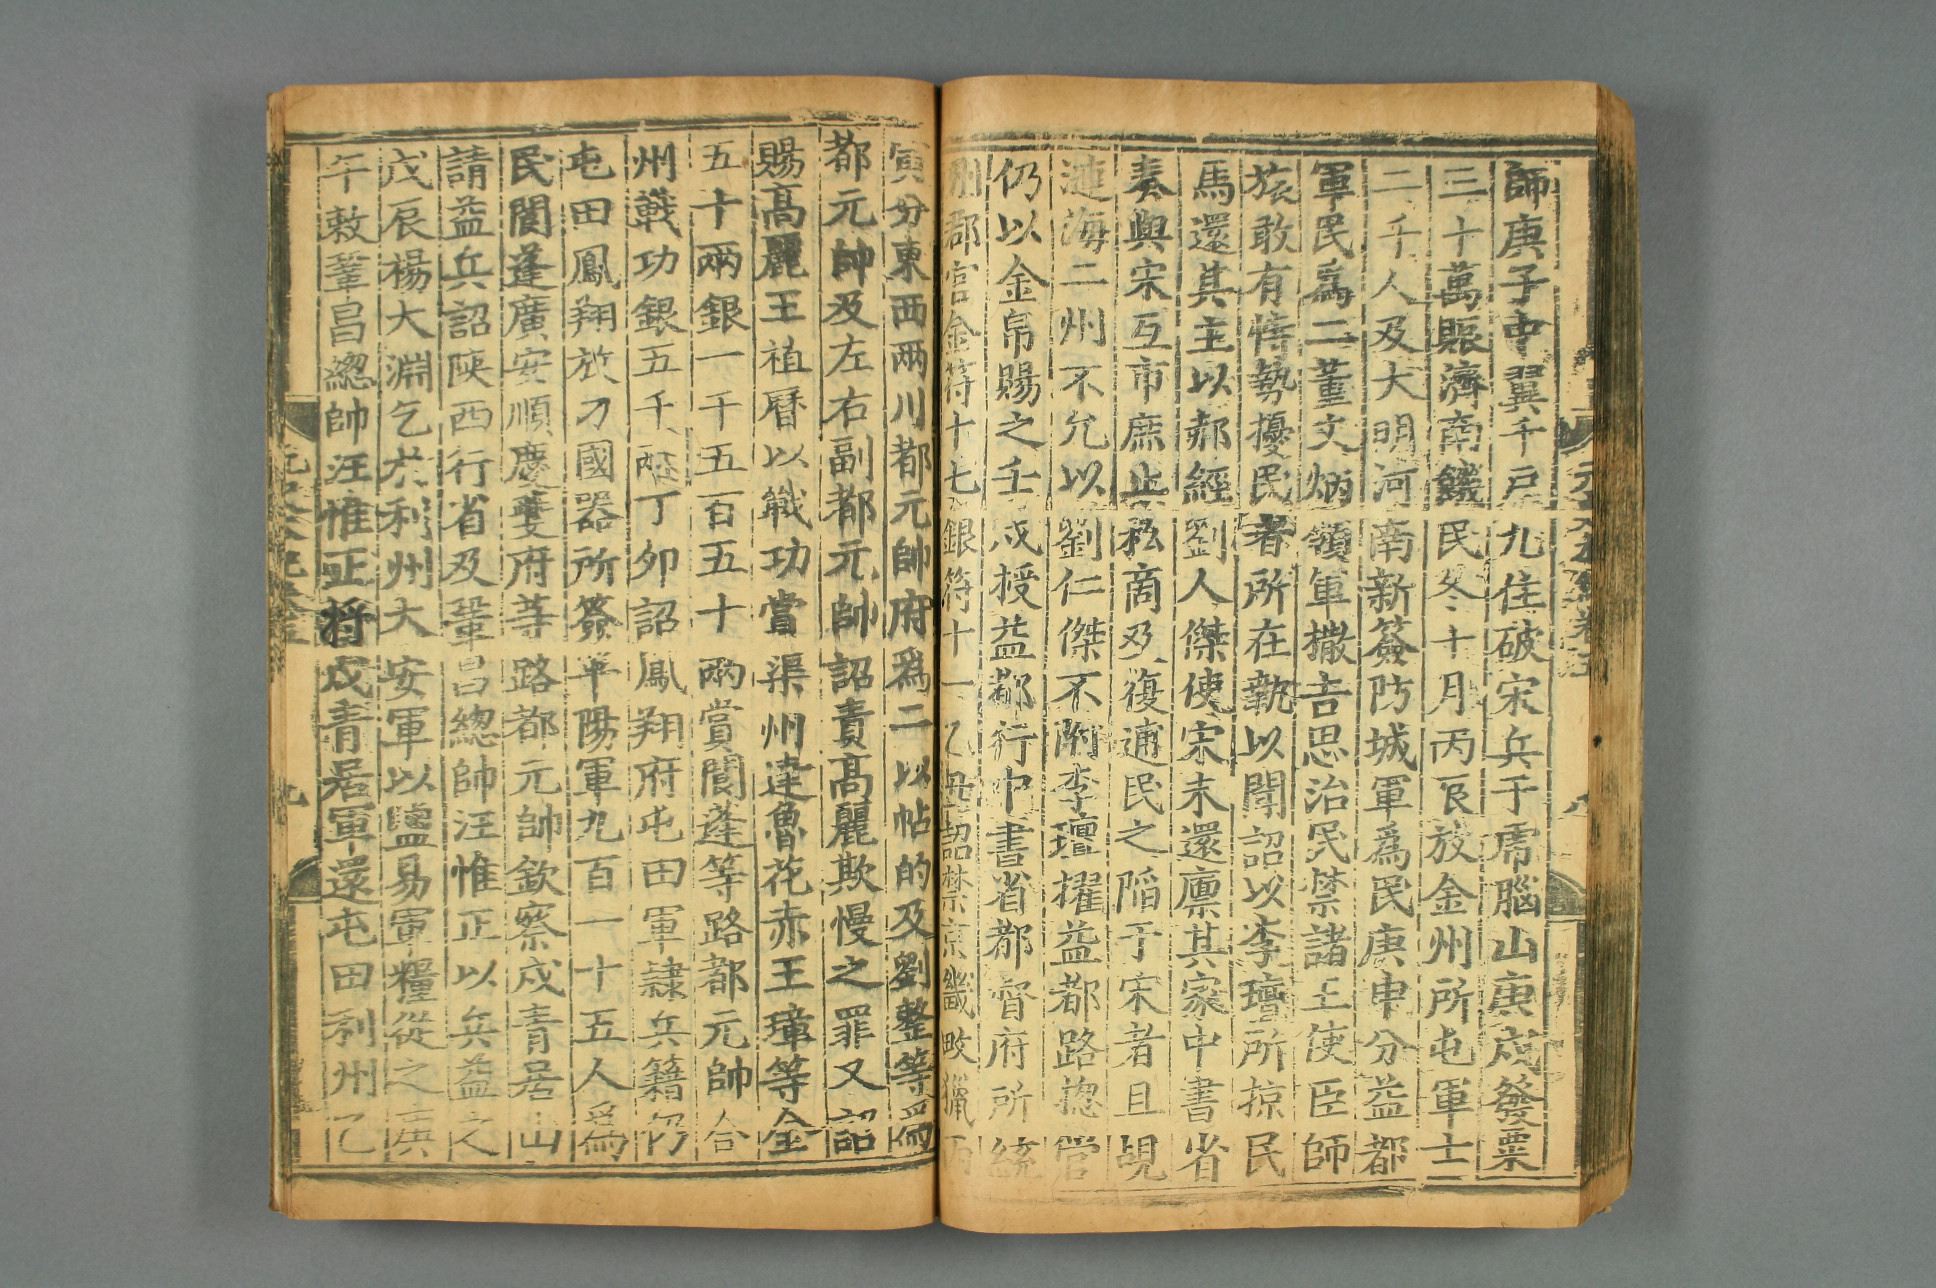 師庚子中翼千戸九住破宋兵于虎腦山庚戌發粟
三十萬賑濟南饑民冬十月丙辰放金州所屯軍士
二千人及大明河南新簽防城軍爲民庚申分益都
軍民爲二董文炳領軍撒吉思治民禁諸王使臣師
旅敢有恃勢擾民者所在執以聞詔以李璮所掠民
馬還其主以郝經劉人傑使宋未還廩其家中書省
奏與宋互市庶止私商及復逋民之陷于宋者且覘
漣海二州不允以劉仁傑不附李璮擢益都路揔管
仍以金帛賜之壬戌授益都行中書省都督府所統
州郡官金符十七銀符十一乙丑詔禁京畿畋獵丙
寅分東西兩川都元帥府爲二以帖的及劉整等爲
都元帥及左右副都元帥詔責高麗欺慢之罪又詔
賜高麗王植曆以戰功賞渠州達魯花赤王璋等金
五十兩銀一千五百五十兩賞閬蓬等路都元帥合
州戰功銀五千兩丁夘詔鳳翔府屯田軍隷兵籍仍
屯田鳳翔放刁國器所簽平陽軍九百一十五人爲
民閬蓬廣安順慶夔府等路都元帥欽察戍青居山
請益兵詔陝西行省及鞏昌總帥汪惟正以兵益之
戊辰楊大淵乞於利州大安軍以鹽易軍糧從之庚
午敕鞏昌總帥汪惟正將戍青居軍還屯田利州乙
九